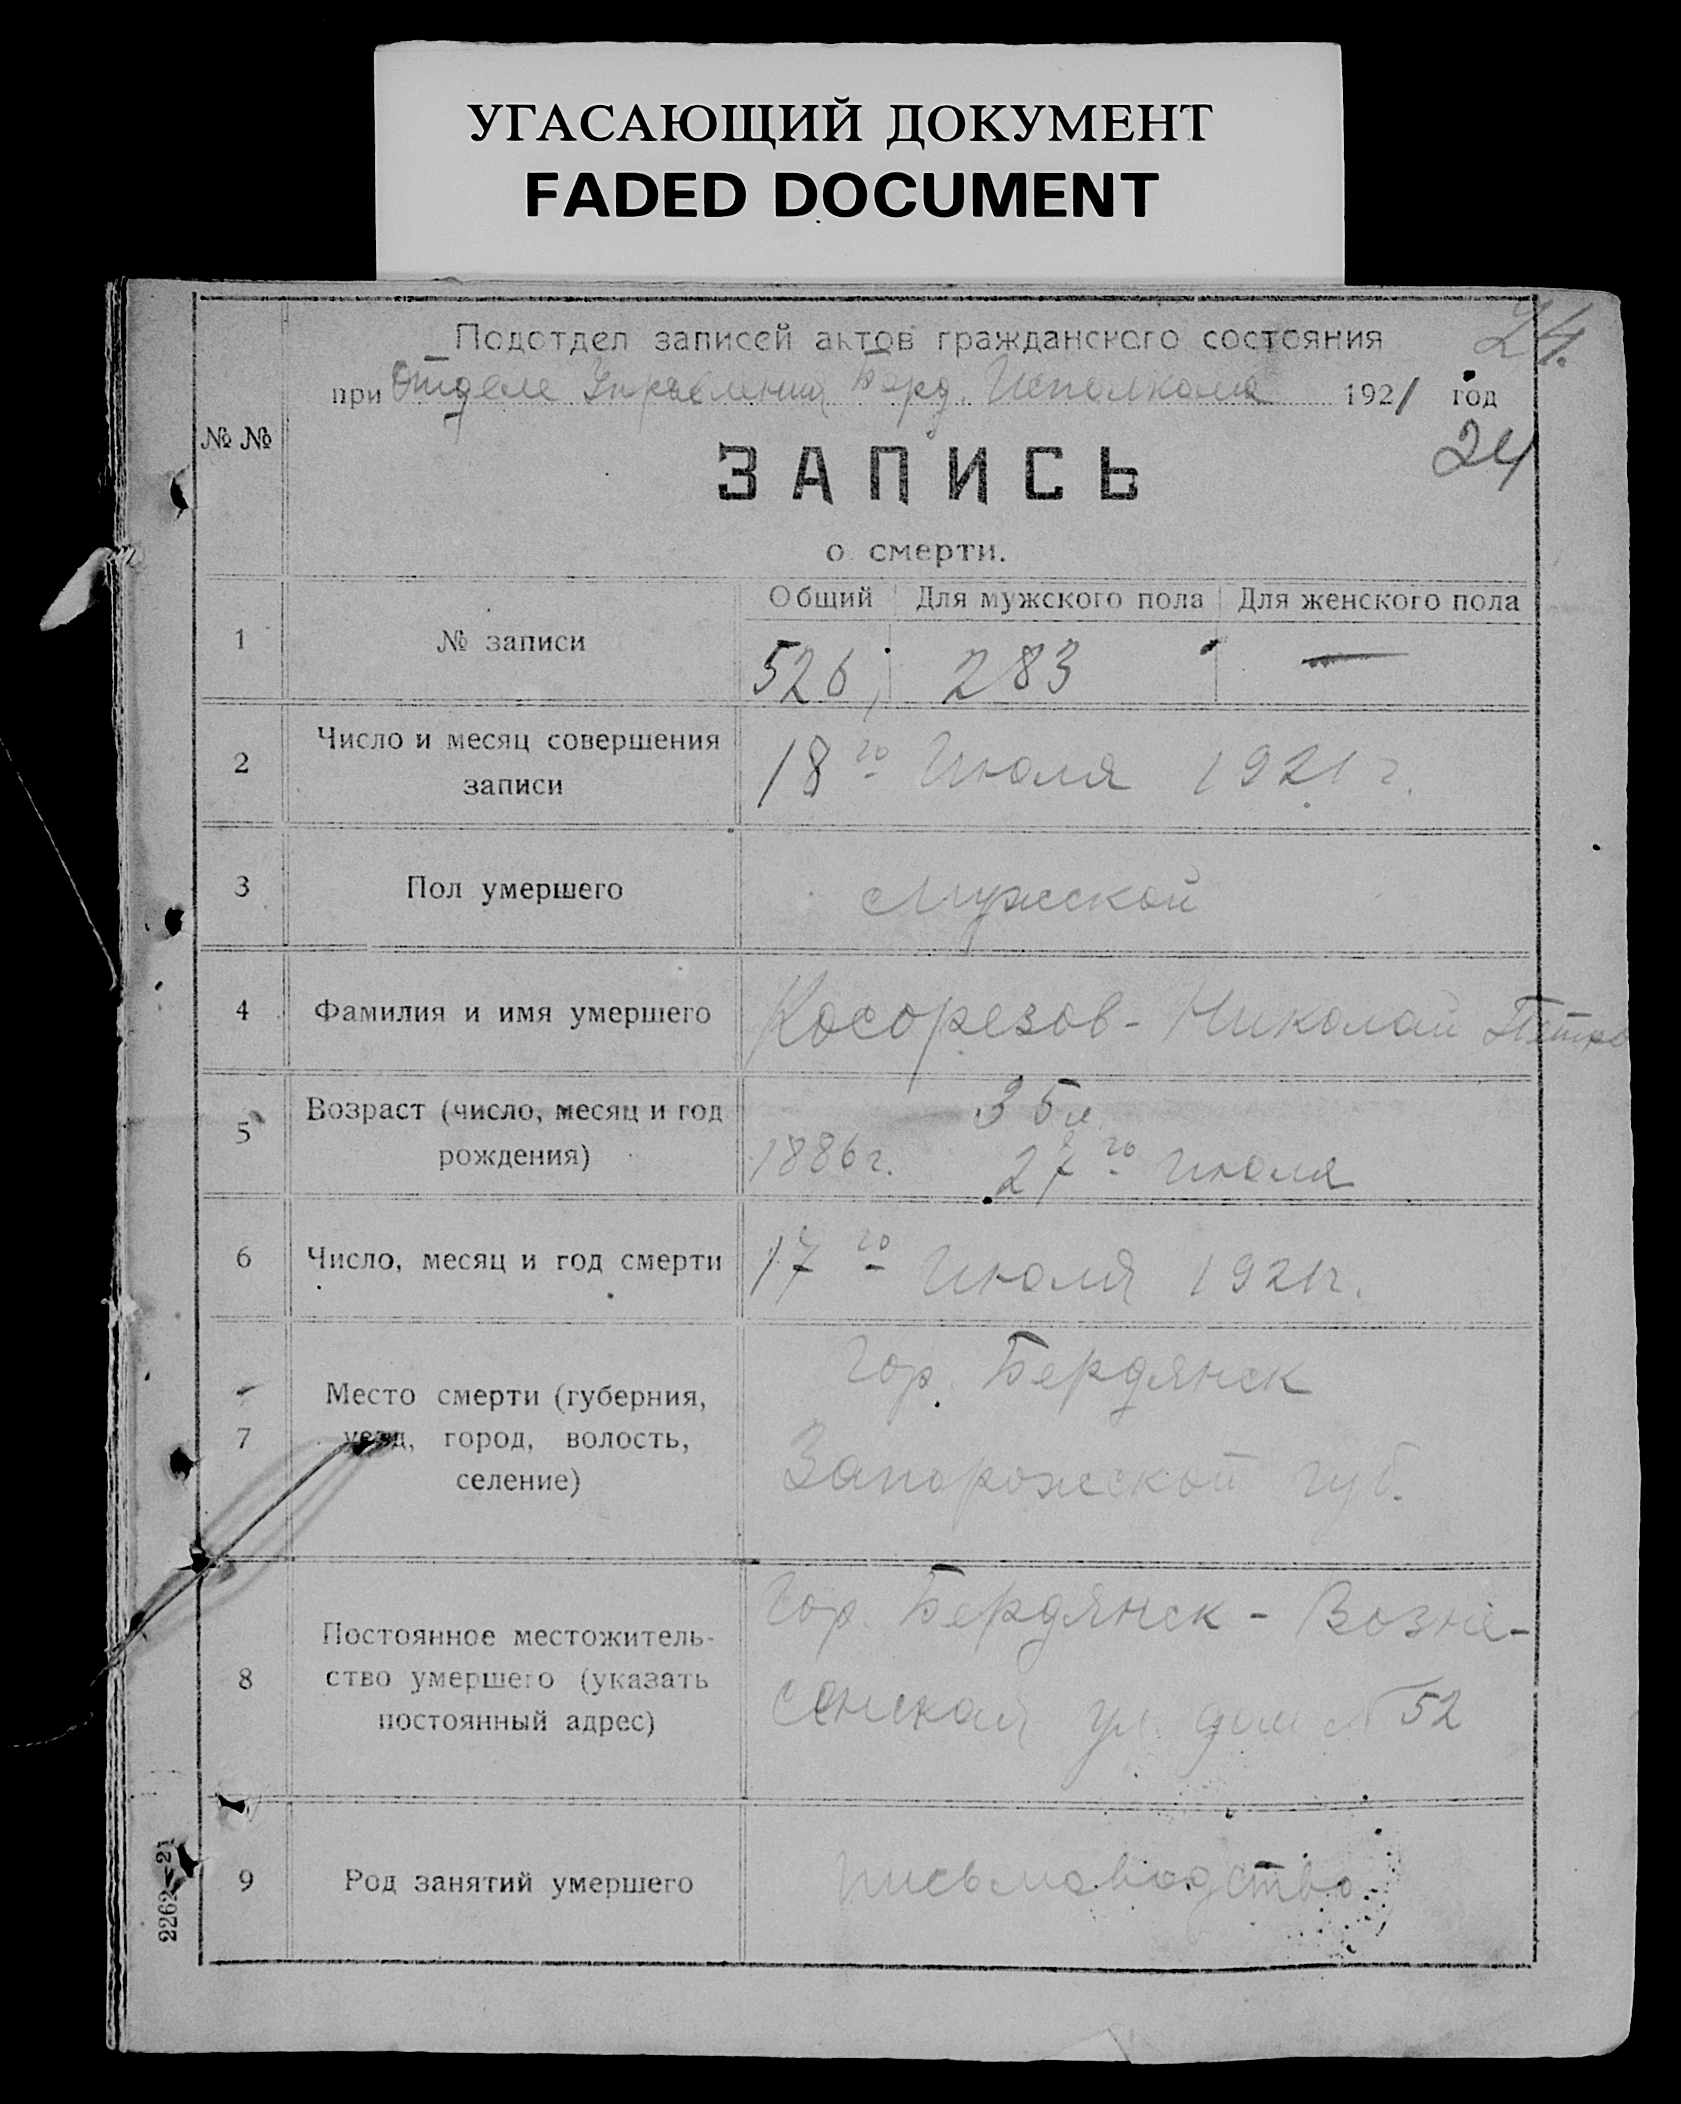 УГАСАЮЩИЙ ДОКУМЕНТ
FADED DOCUMENT
24.
Подотдел записей актов гражданского состояния
при Отделе Управления Берд. Исполкома 1921 год
24
№ №
ЗАПИСЬ
о смерти.
Общий Для мужского пола Для женского пола
1 № записи 526, 283 —
2 Число и месяц совершения
записи
18го Июля 1921 г.
3 Пол умершего Мужской
4 Фамилия и имя умершего Косорезов - Николай Петров
5 Возраст (число, месяц и год
рождения)
35 л.
1886 г. 27го июля
6 Число, месяц и год смерти 17го Июля 1921 г.
7 Место смерти (губерния,
уезд, город, волость,
селение)
Гор. Бердянск
Запорожской губ.
8 Постоянное местожитель-
ство умершего (указать
постоянный адрес)
Гор. Бердянск - Возне-
сенская ул. дом № 52
9 Род занятий умершего письмоводство
2262—21